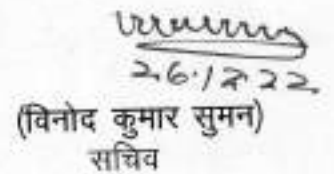 26.12.22
(विनोद कुमार सुमन)
सचिव